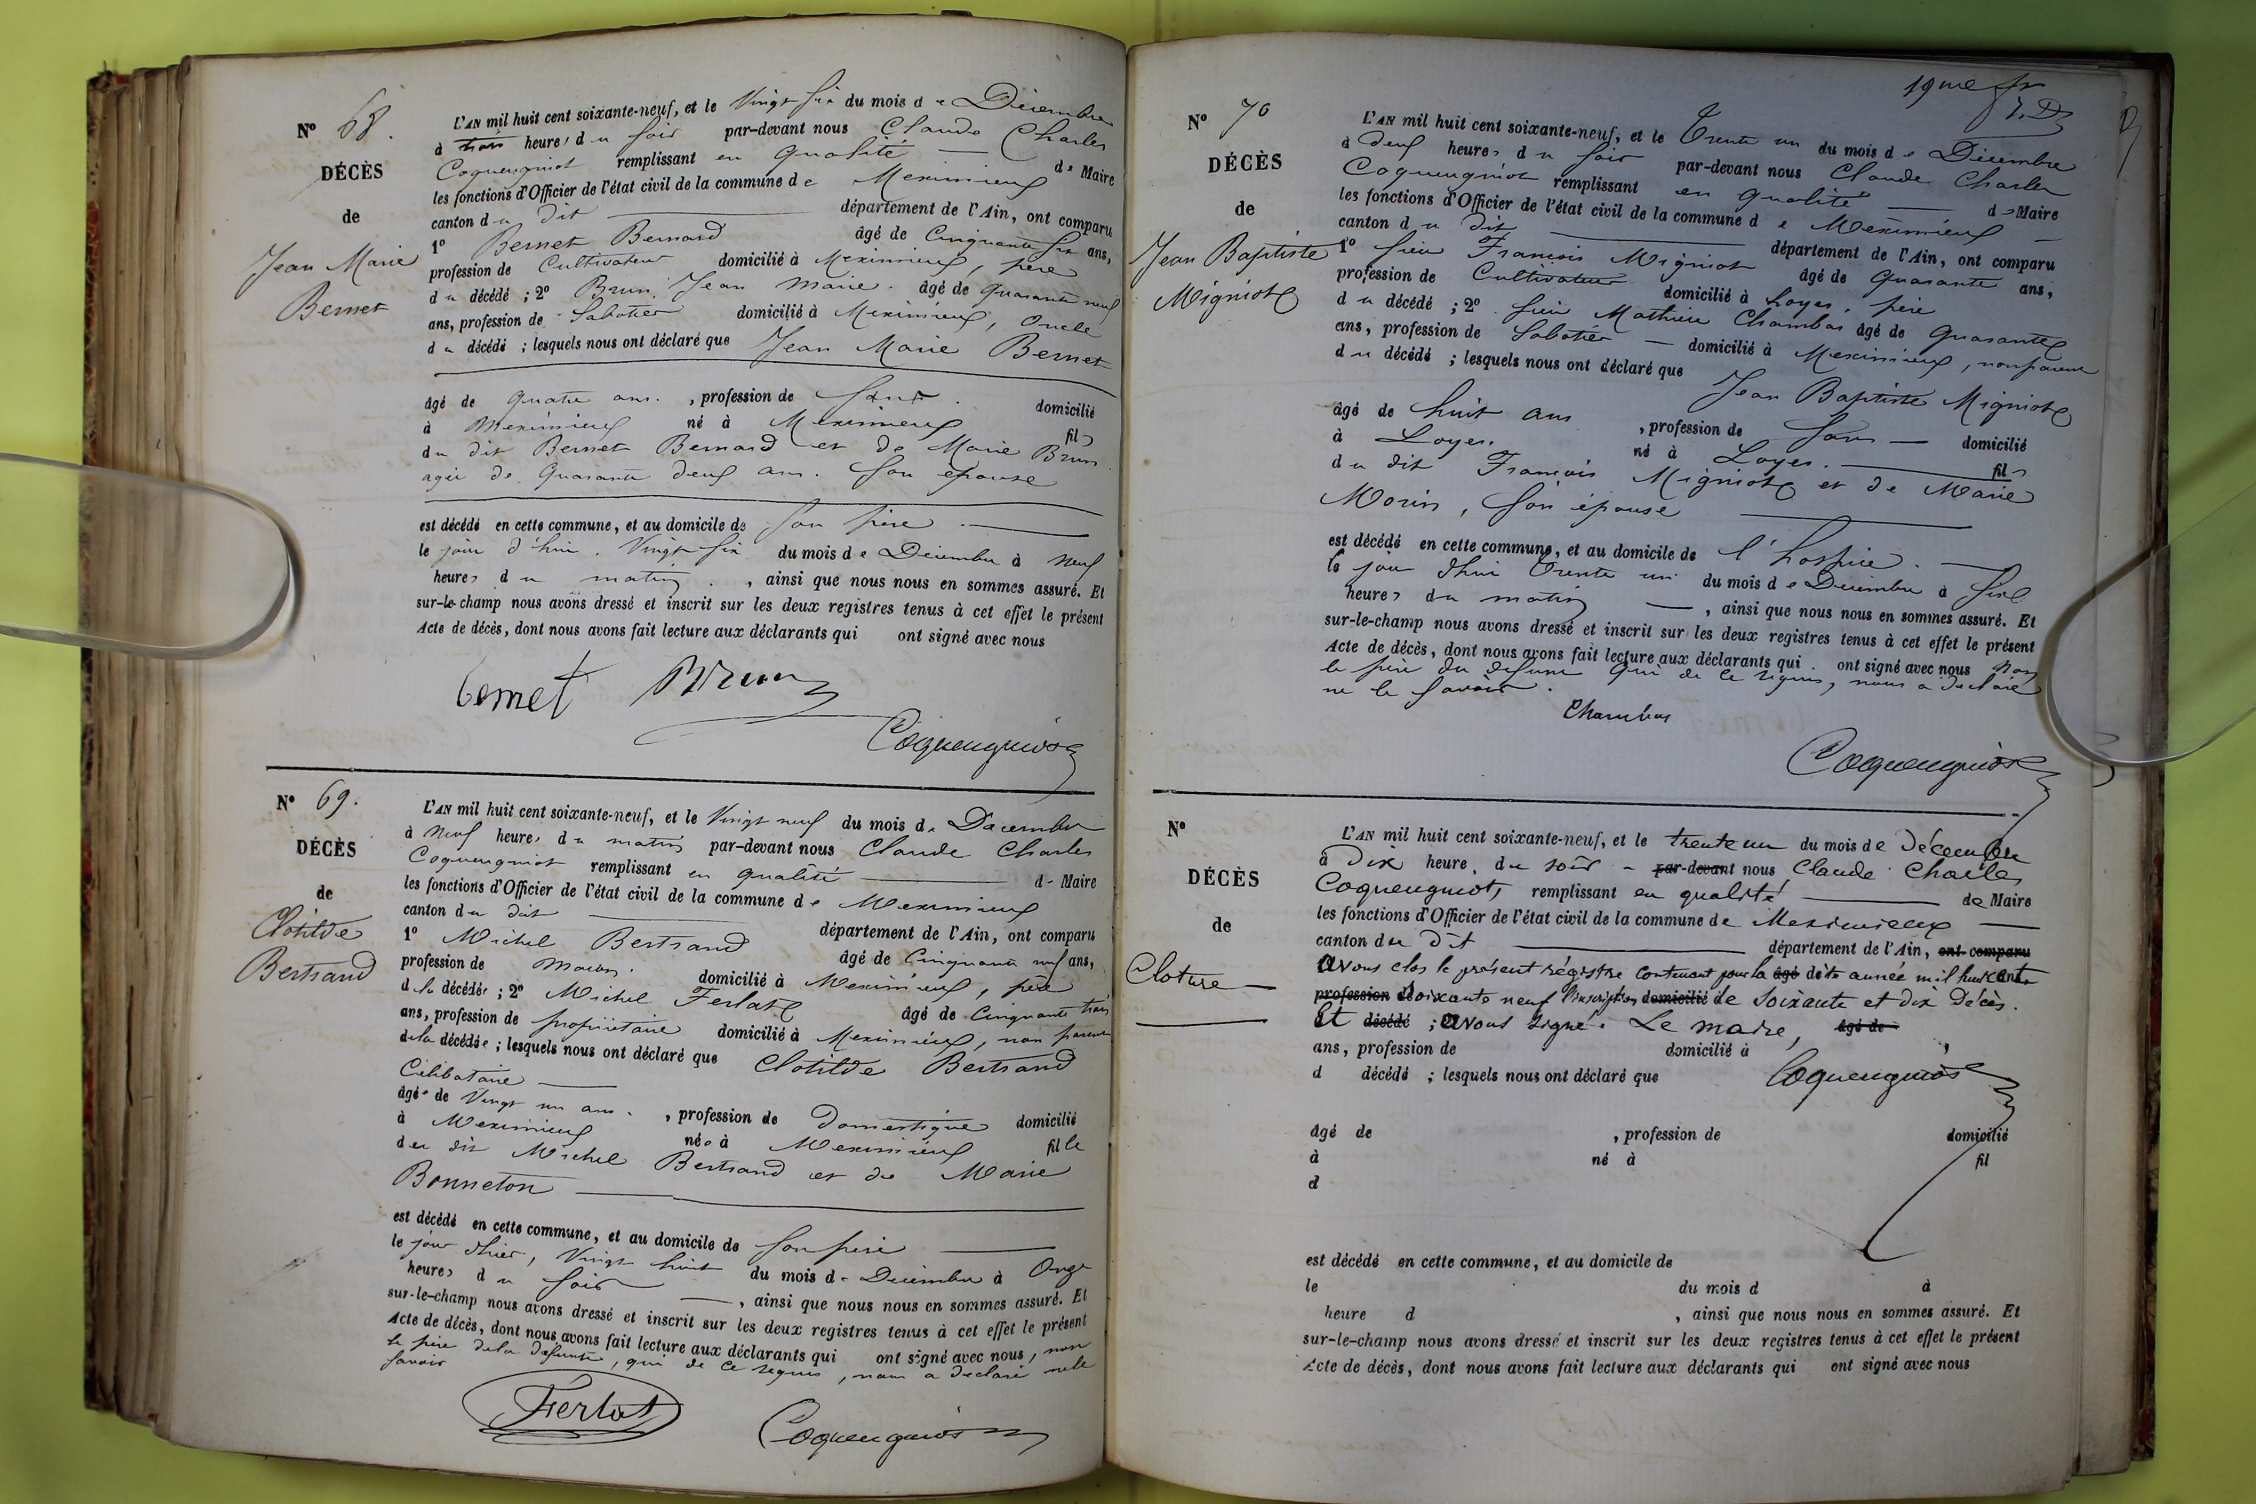 N° 68.
DÉCÈS
de
Jean Marie
Bernet
L'AN mil huit cent soixante-neuf, et le Vingt six du mois de Décembre
à trois heures du soir par-devant nous Claude Charles
Coquengniot remplissant en qualité de Maire
les fonctions d'Officier de l'état civil de la commune de Meximieux
canton du dit département de l'Ain, ont comparu
1° Bernet Bernard âgé de Cinquante six ans,
profession de Cultivateur domicilié à Meximieux, père
du décédé ; 2° Brun Jean Marie. âgé de quarante neuf
ans, profession de Sabotier domicilié à Meximieux, Oncle
du décédé ; lesquels nous ont déclaré que Jean Marie Bernet
âgé de quatre ans. , profession de Sans. domicilié
à Meximieux né à Meximieux fils
du dit Bernet Bernard et de Marie Brun.
agée de Quarante deux ans. Son épouse
est décédé en cette commune, et au domicile de son père.
le jour d'hui. Vingt six du mois de Décembre à neuf
heures du matin. , ainsi que nous nous en sommes assuré. Et
sur-le-champ nous avons dressé et inscrit sur les deux registres tenus à cet effet le présent
Acte de décès, dont nous avons fait lecture aux déclarants qui ont signé avec nous
bernet Brun
Coquengniot
N° 69.
DÉCÈS
de
Clotilde
Bertrand
L'AN mil huit cent soixante-neuf, et le Vingt neuf du mois de Décembre
à Neuf heures du matin par-devant nous Claude Charles
Coquengniot remplissant en qualité de Maire
les fonctions d'Officier de l'état civil de la commune de Meximieux
canton du dit département de l'Ain, ont comparu
1° Michel Bertrand âgé de Cinquante neuf ans,
profession de Maçon. domicilié à Meximieux, père
de la décédée ; 2° Michel Ferlat âgé de Cinquante trois
ans, profession de propriétaire domicilié à Meximieux, non parent
de la décédée ; lesquels nous ont déclaré que Clotilde Bertrand
Célibataire
âgée de Vingt un ans. , profession de Domestique domicilié
à Meximieux née à Meximieux fille
du dit Michel Bertrand et de Marie
Bonneton
est décédé en cette commune, et au domicile de son père
le jour d'hier, Vingt huit du mois de Décembre à Onze
heures du soir , ainsi que nous nous en sommes assuré. Et
sur-le-champ nous avons dressé et inscrit sur les deux registres tenus à cet effet le présent
Acte de décès, dont nous avons fait lecture aux déclarants qui ont signé avec nous, non
le père de la défunte, qui de ce requis, nous a déclaré ne le
savoir
Ferlat
Coquengniot
19me
N° 70
DÉCÈS
de
Jean Baptiste
Migniot
L'AN mil huit cent soixante-neuf, et le Trente un du mois de Décembre
à deux heures du soir par-devant nous Claude Charles
Coquengniot remplissant en qualité de Maire
les fonctions d'Officier de l'état civil de la commune de Meximieux
canton du dit département de l'Ain, ont comparu
1° sieur François Migniot âgé de Quarante ans,
profession de Cultivateur domicilié à Loyes, père
du décédé ; 2° sieur Mathieu Chambas âgé de Quarante
ans, profession de Sabotier domicilié à Meximieux, non parent
du décédé ; lesquels nous ont déclaré que Jean Baptiste Migniot
âgé de huit ans , profession de Sans domicilié
à Loyes. né à Loyes. fils
du dit François Migniot et de Marie
Morin, son épouse
est décédé en cette commune, et au domicile de l'hospice.
le jour d'hui Trente un du mois de Décembre à six
heures du matin , ainsi que nous nous en sommes assuré. Et
sur-le-champ nous avons dressé et inscrit sur les deux registres tenus à cet effet le présent
Acte de décès, dont nous avons fait lecture aux déclarants qui ont signé avec nous non
le père du défunt qui de ce requis, nous a déclaré
ne le savoir.
Chambas
Coquengniot
N°
DÉCÈS
de
Cloture
L'AN mil huit cent soixante-neuf, et le trente un du mois de Décembre
à Dix heure du soir par-devant nous Claude Charles
Coquengniot, remplissant en qualité de Maire
les fonctions d'Officier de l'état civil de la commune de Meximieux
canton du dit département de l'Ain, ont comparu
avons clos le présent régistre contenant pour la âgé dite année mil huit cents
profession de soixante neuf l'inscription domicilié de soixante et dix Décès.
Et décédé ; avons signé. Le maire, âgé de
ans, profession de domicilié à ,
d décédé ; lesquels nous ont déclaré que Coquengniot
âgé de , profession de domicilié
à né à fil
d
est décédé en cette commune, et au domicile de
le du mois d à
heure d , ainsi que nous nous en sommes assuré. Et
sur-le-champ nous avons dressé et inscrit sur les deux registres tenus à cet effet le présent
Acte de décès, dont nous avons fait lecture aux déclarants qui ont signé avec nous